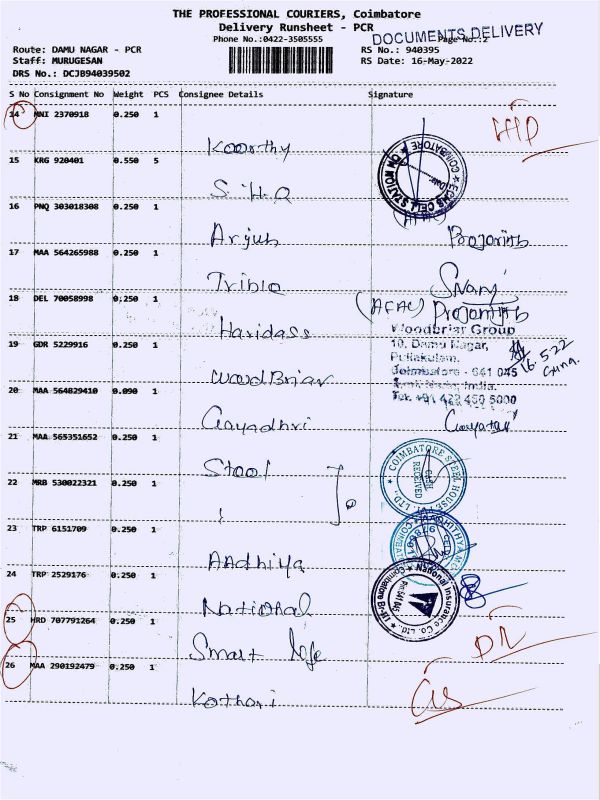 THE PROFESSIONAL COURIERS, Coimbatore
Delivery Runsheet - PCR
DOCUMENTS DELIVERY
Phone No.:0422-3505555 Page No.:2
Route: DAMU NAGAR - PCR RS No.: 940395
Staff: MURUGESAN RS Date: 16-May-2022
DRS No.: DCJB94039502
S No Consignment No Weight PCS Consignee Details Signature
14 MNI 2370918 0.250 1
Koorthy
15 KRG 920401 0.550 5
S.i.H.Q
16 PNQ 303018308 0.250 1
Arjun
17 MAA 564265988 0.250 1
Trible
18 DEL 70058998 0.250 1
Haridass
Woodbriar Group
19 GDR 5229916 0.250 1
10, Damu Nagar,
Puliakulam,
Coimbatore - 641 045
16.5.22
WoodBriar
Tamil Nadu, India.
20 MAA 564829410 0.090 1
Tel: +91 422 450 5000
Gayadhri
Gayatri
21 MAA 565351652 0.250 1
Steel
COIMBATORE STEEL HOUSE
CASH RECEIVED
22 MRB 530022321 0.250 1
23 TRP 6151709 0.250 1
Aadhiya
24 TRP 2529176 0.250 1
National
National Insurance Co. Ltd.
25 HRD 707791264 0.250 1
Smart life
26 MAA 290192479 0.250 1
Kothari